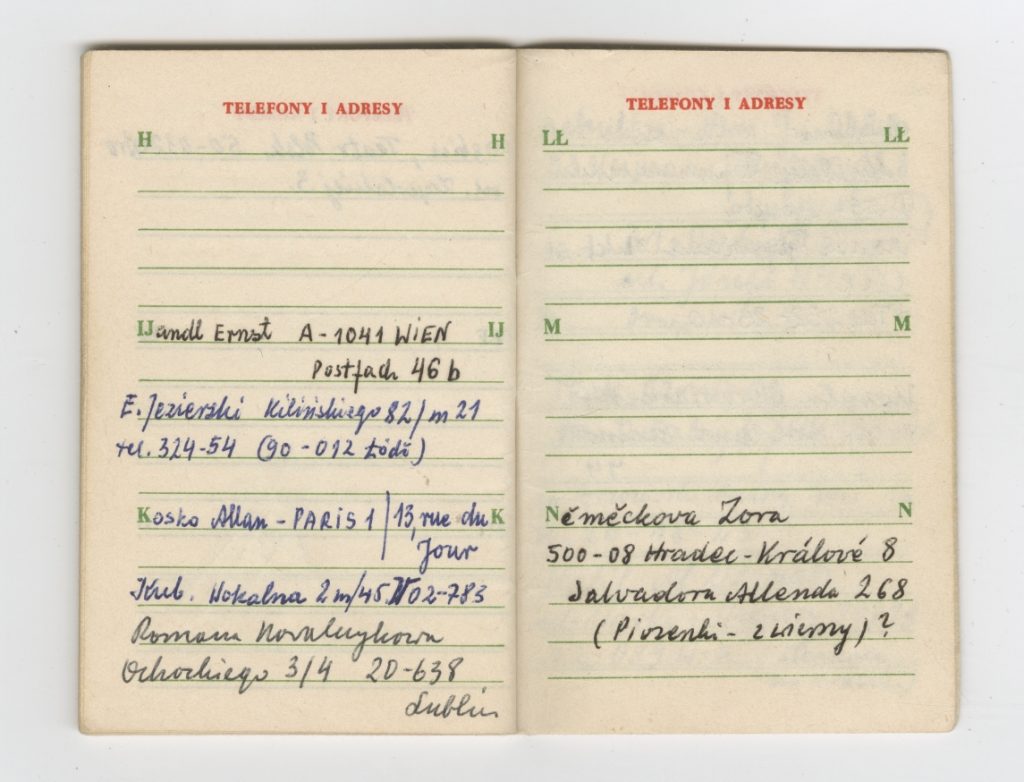 TELEFONY I ADRESY
H H
IJandl Ernst A-1041 WIEN IJ
Postfach 46 b
E. Jezierski Kilińskiego 82/m 21
tel. 324-54 (90-012 Łódź)
Kosko Allan - PARIS 1 | 13, rue du K
Jour
Kub. Wokalna 2 m/45 02-783
Romana
Ochockiego 3/4 20-638
Lublin
TELEFONY I ADRESY
LŁ LŁ
M M
Něměčkova Zora N
500-08 Hradec-Králové 8
Salvadora Allenda 268
(Piosenki - wiersze)?